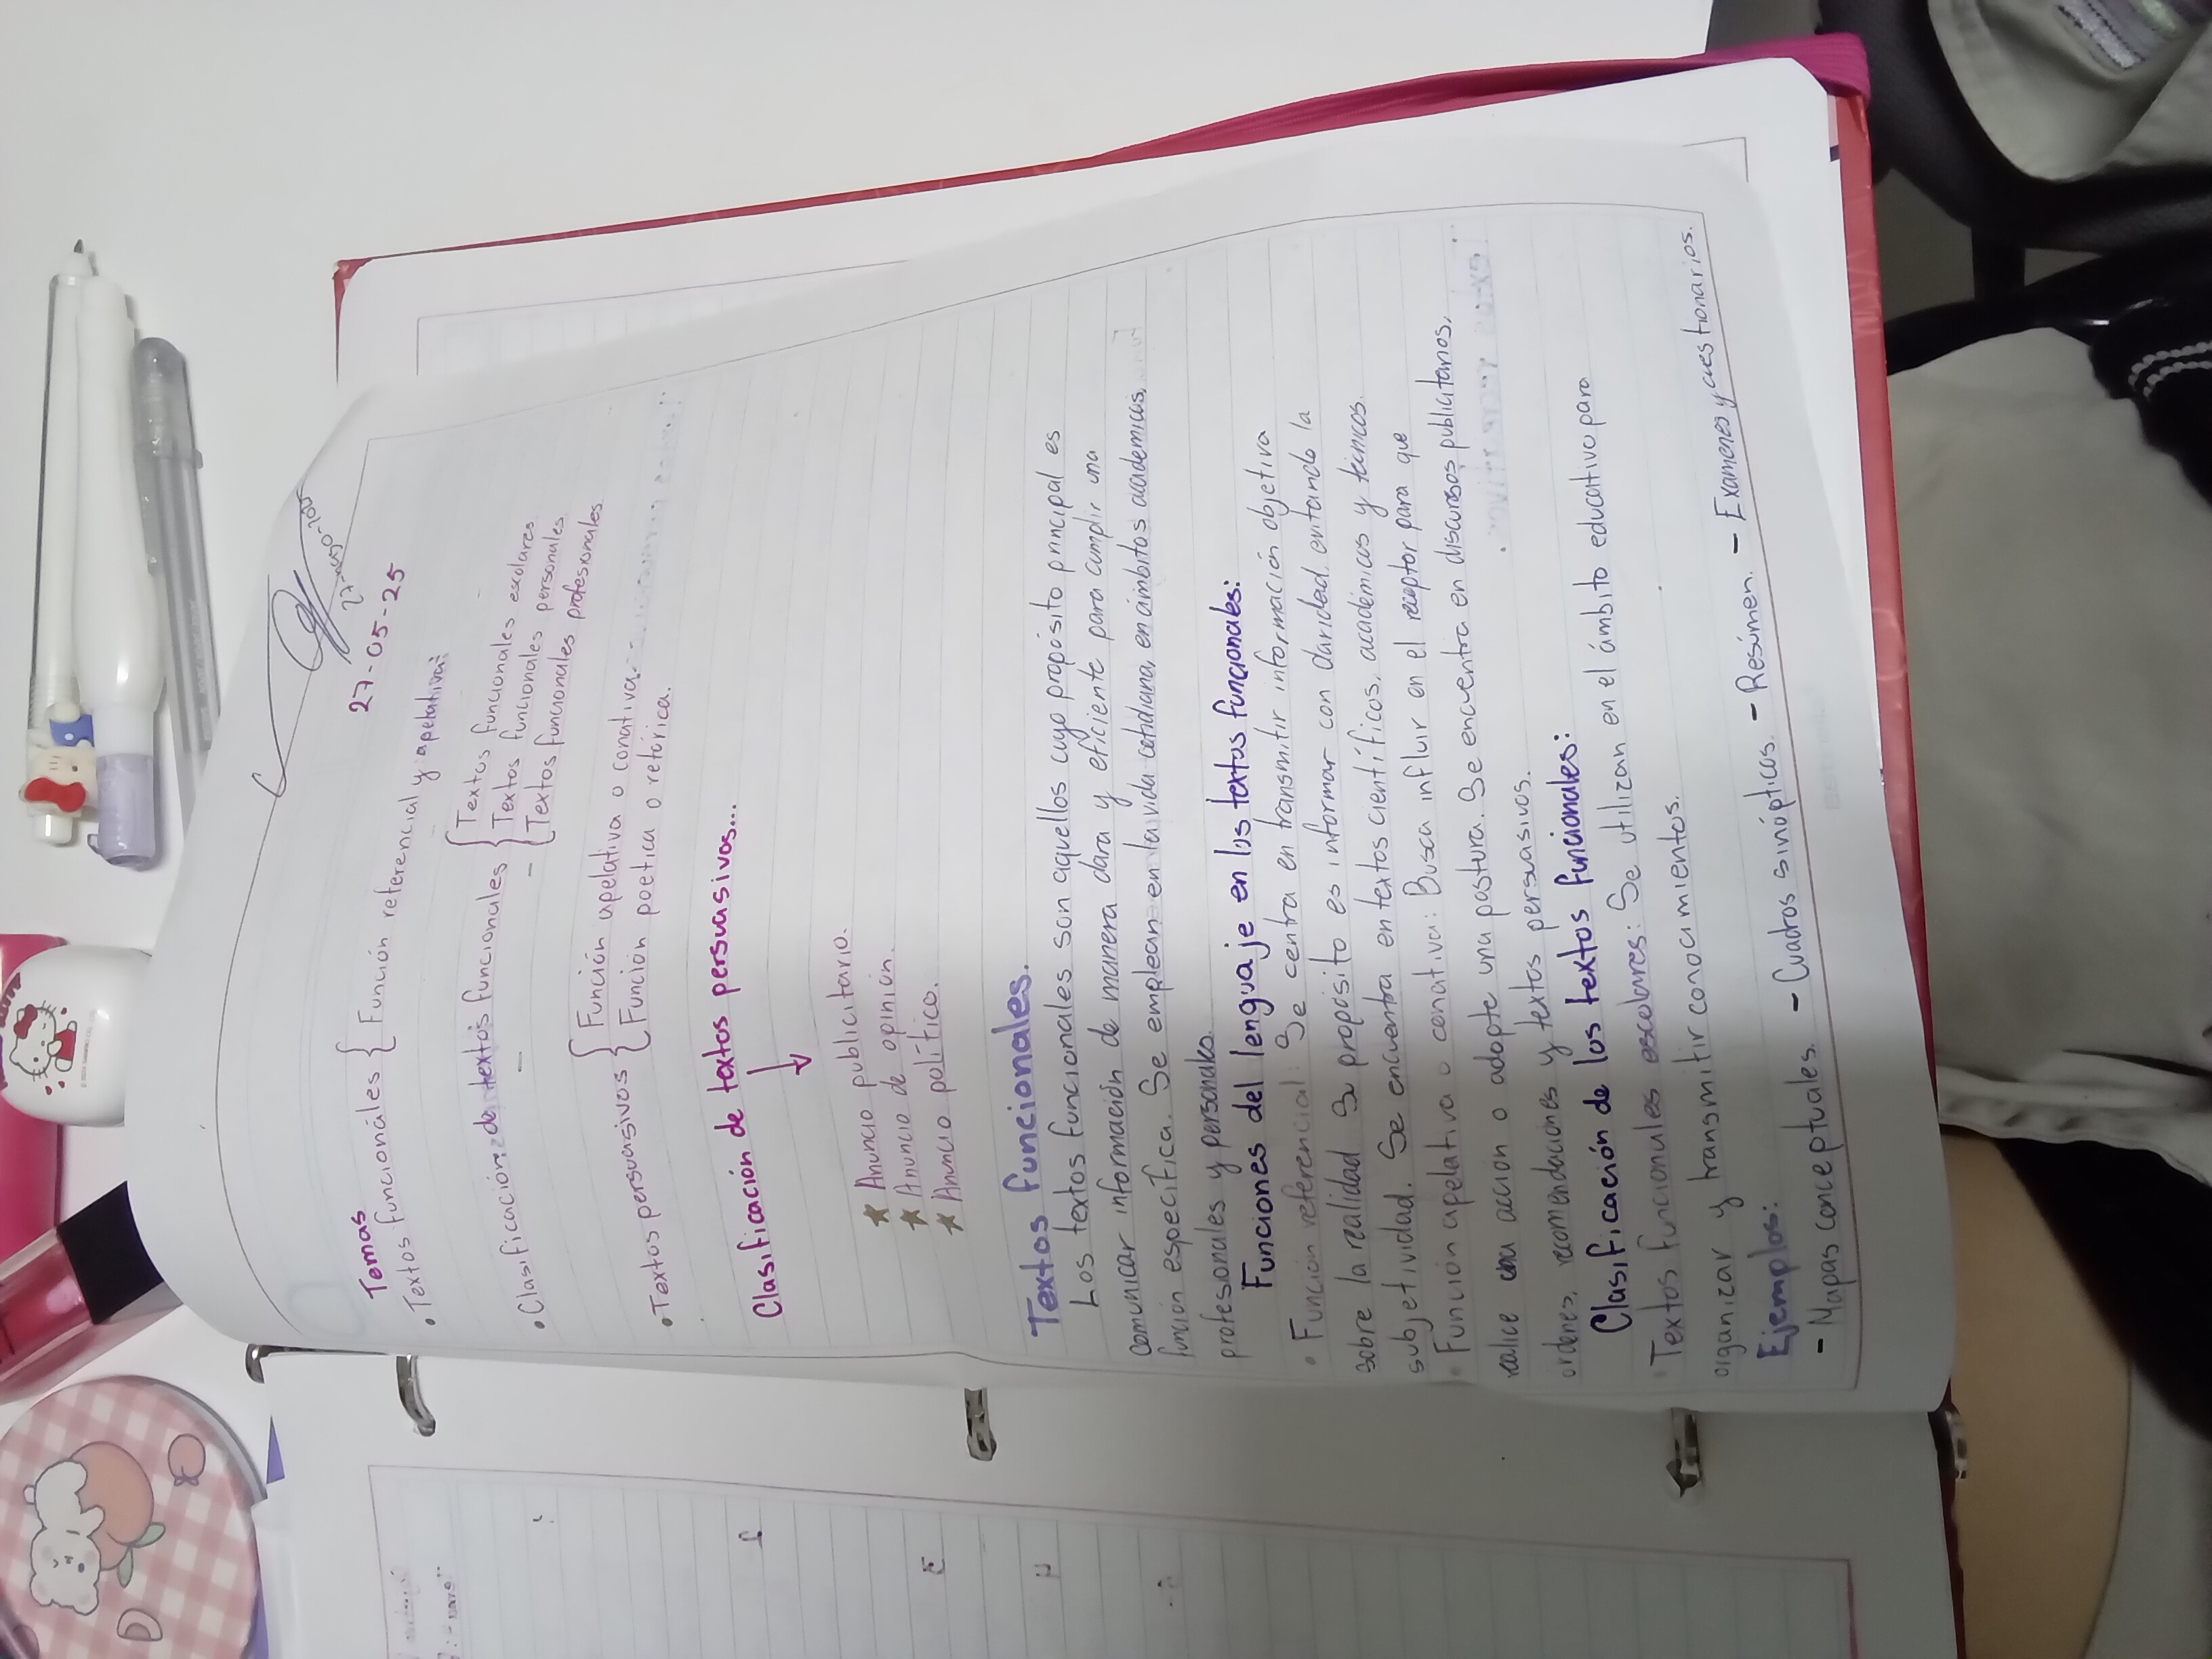 27-mayo-2025
27-05-25
Temas
• Textos funcionales { Función referencial y apelativa:
• Clasificación de textos funcionales { Textos funcionales escolares
{ Textos funcionales personales
{ Textos funcionales profesionales
• Textos persuasivos { Función apelativa o conativa
{ Función poetica o retórica.
Clasificación de textos persuasivos...
↓
★ Anuncio publicitario.
★ Anuncio de opinión.
★ Anuncio político.
Textos funcionales.
Los textos funcionales son aquellos cuyo propósito principal es
comunicar información de manera clara y eficiente para cumplir una
función especifica. Se emplean en la vida cotidiana, en ámbitos academicos,
profesionales y personales.
Funciones del lenguaje en los textos funcionales:
• Función referencial: Se centra en transmitir información objetiva
sobre la realidad. Su proposito es informar con claridad, evitando la
subjetividad. Se encuentra en textos científicos, académicos y tecnicos.
• Función apelativa o conativa: Busca influir en el receptor para que
realice una acción o adopte una postura. Se encuentra en discursos publicitarios,
ordenes, recomendaciones y textos persuasivos.
Clasificación de los textos funcionales:
• Textos funcionales escolares: Se utilizan en el ámbito educativo para
organizar y transmitir conocimientos.
Ejemplos:
- Mapas conceptuales. - Cuadros sinópticos. - Resúmen. - Examenes y cuestionarios.